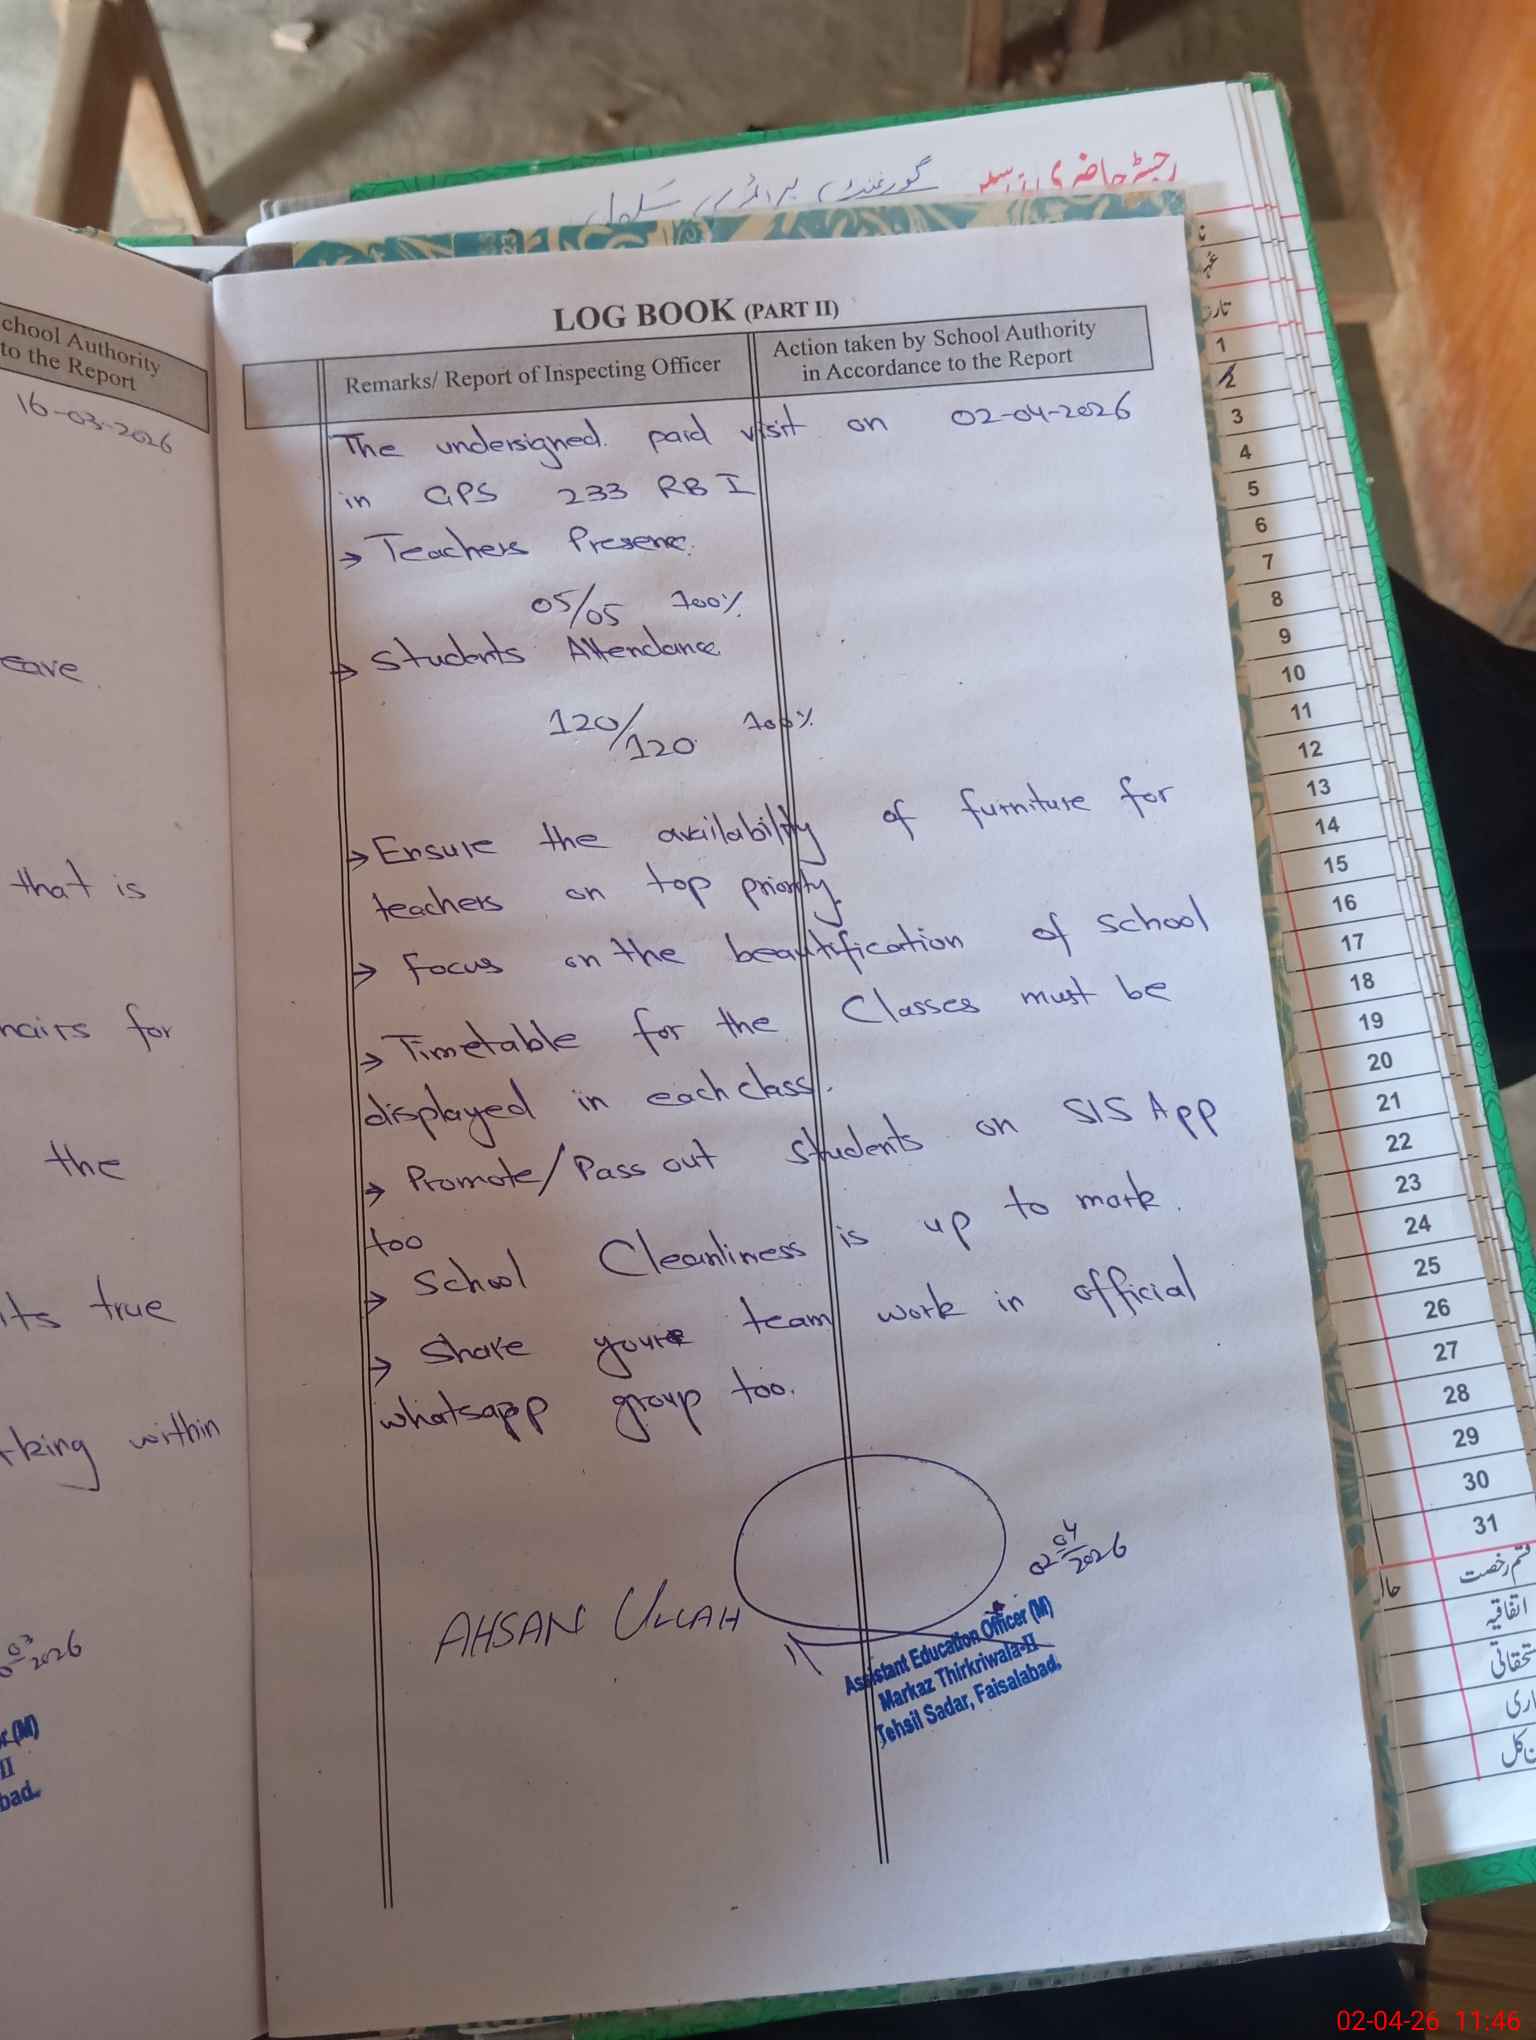 chool Authority
to the Report
16-03-2026
eave.
that is
hairs for
the
its true
rking within
03
2026
r (M)
II
bad.
رجسٹر حاضری
گورنمنٹ پرائمری سکول
LOG BOOK (PART II)
Remarks/ Report of Inspecting Officer
Action taken by School Authority
in Accordance to the Report
The undersigned paid visit on 02-04-2026
in GPS 233 RB I
→ Teachers Presence.
05/05 100%
→ Students Attendance
120/120 100%
→ Ensure the availability of furniture for
teachers on top priority.
→ focus on the beautification of school
→ Timetable for the Classes must be
displayed in each class.
→ Promote/Pass out students on SIS App
too
→ School Cleanliness is up to mark.
→ Share your team work in official
whatsapp group too.
AHSAN ULLAH
02-04-2026
Assistant Education Officer (M)
Markaz Thirkriwala-II
Tehsil Sadar, Faisalabad.
1
2
3
4
5
6
7
8
9
10
11
12
13
14
15
16
17
18
19
20
21
22
23
24
25
26
27
28
29
30
31
قسم رخصت
اتفاقیہ
02-04-26 11:46